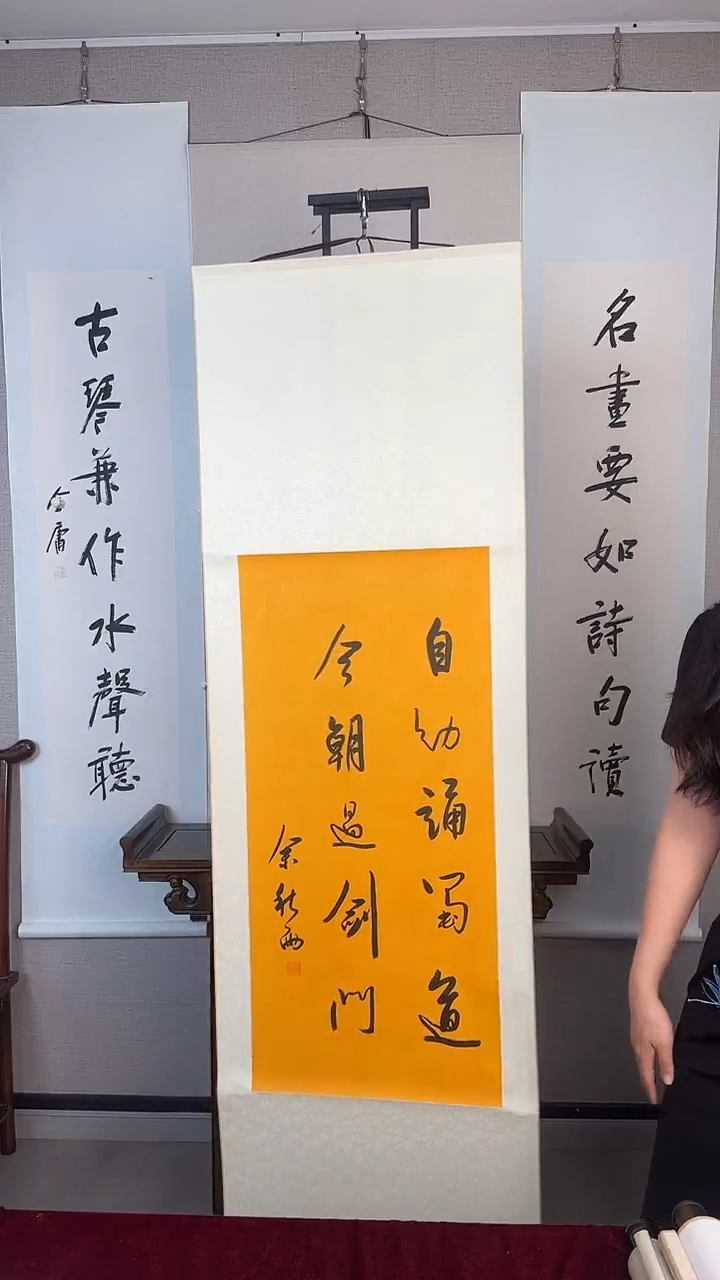 名畫要如詩句讀
古琴兼作水聲聽
金庸
自幼誦蜀道
今朝過劍門
余秋雨